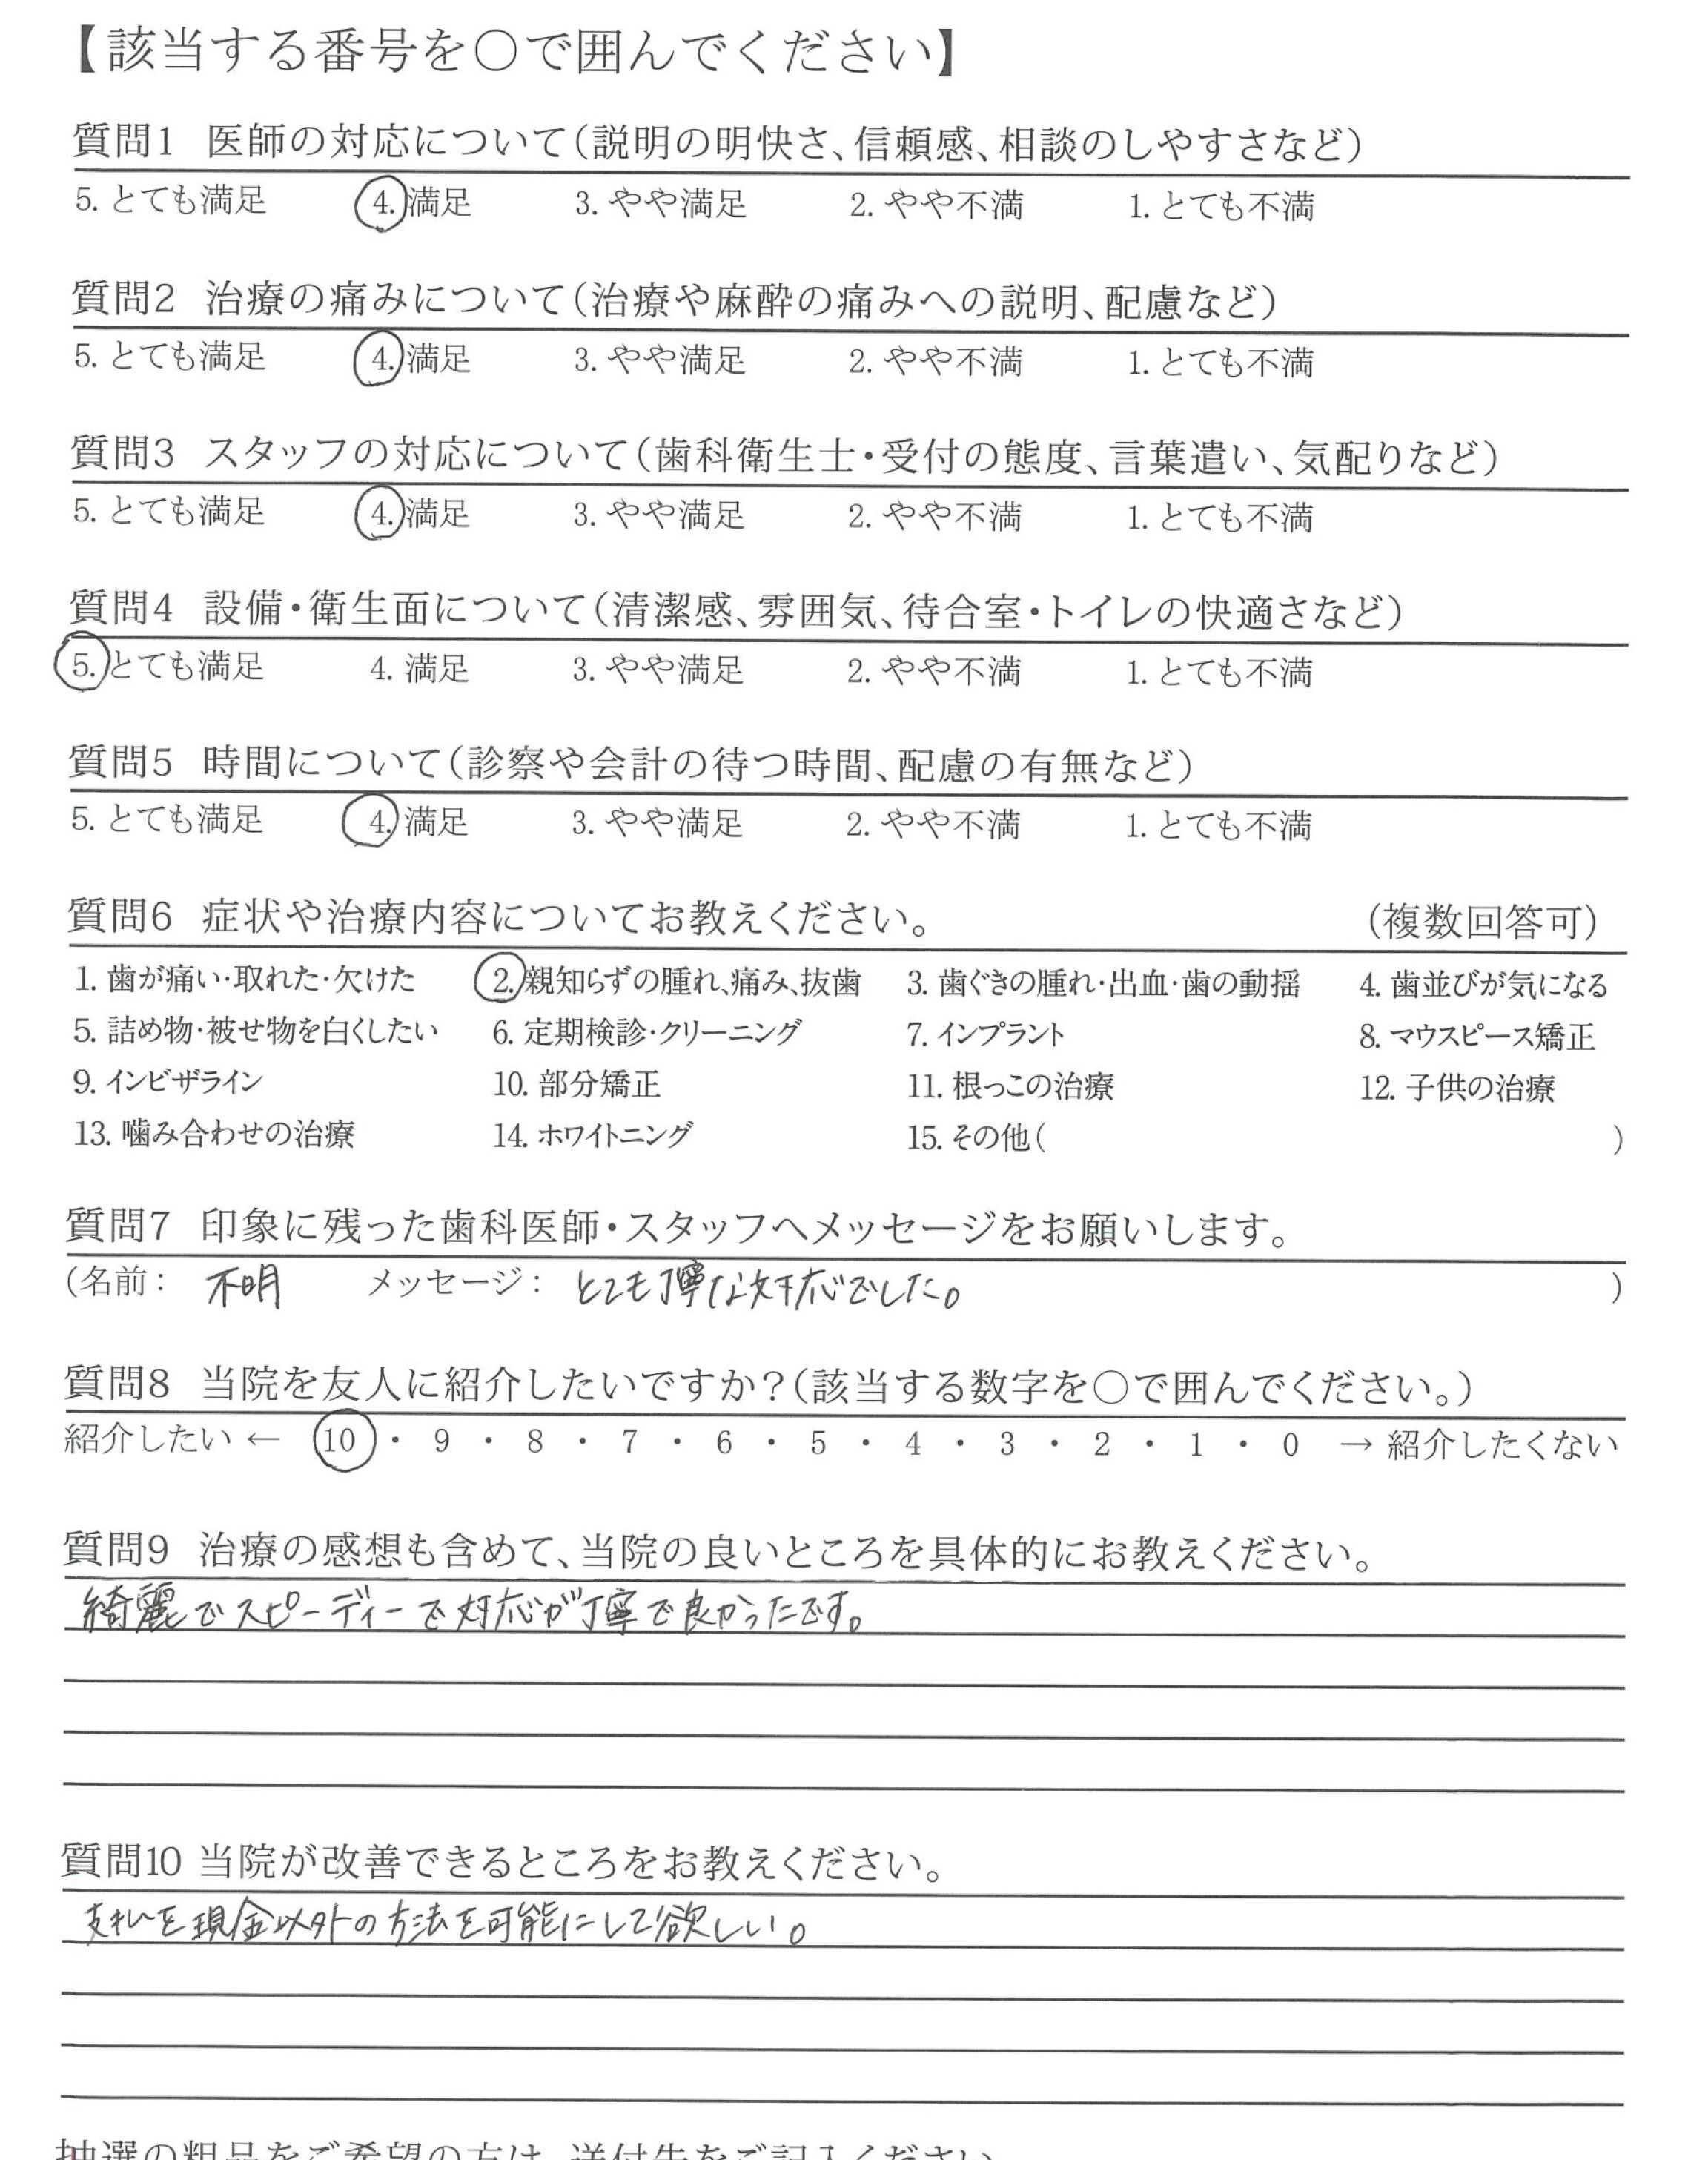 【該当する番号を○で囲んでください】
質問1 医師の対応について(説明の明快さ、信頼感、相談のしやすさなど)
5. とても満足 4. 満足 3. やや満足 2. やや不満 1. とても不満
質問2 治療の痛みについて(治療や麻酔の痛みへの説明、配慮など)
5. とても満足 4. 満足 3. やや満足 2. やや不満 1. とても不満
質問3 スタッフの対応について(歯科衛生士・受付の態度、言葉遣い、気配りなど)
5. とても満足 4. 満足 3. やや満足 2. やや不満 1. とても不満
質問4 設備・衛生面について(清潔感、雰囲気、待合室・トイレの快適さなど)
5. とても満足 4. 満足 3. やや満足 2. やや不満 1. とても不満
質問5 時間について(診察や会計の待つ時間、配慮の有無など)
5. とても満足 4. 満足 3. やや満足 2. やや不満 1. とても不満
質問6 症状や治療内容についてお教えください。 (複数回答可)
1. 歯が痛い・取れた・欠けた 2. 親知らずの腫れ、痛み、抜歯 3. 歯ぐきの腫れ・出血・歯の動揺 4. 歯並びが気になる
5. 詰め物・被せ物を白くしたい 6. 定期検診・クリーニング 7. インプラント 8. マウスピース矯正
9. インビザライン 10. 部分矯正 11. 根っこの治療 12. 子供の治療
13. 噛み合わせの治療 14. ホワイトニング 15. その他( )
質問7 印象に残った歯科医師・スタッフへメッセージをお願いします。
(名前: 不明 メッセージ: とても丁寧な対応でした。 )
質問8 当院を友人に紹介したいですか?(該当する数字を○で囲んでください。)
紹介したい ← 10 ・ 9 ・ 8 ・ 7 ・ 6 ・ 5 ・ 4 ・ 3 ・ 2 ・ 1 ・ 0 → 紹介したくない
質問9 治療の感想も含めて、当院の良いところを具体的にお教えください。
綺麗でスピーディーで対応が丁寧で良かったです。
質問10 当院が改善できるところをお教えください。
支払を現金以外の方法を可能にして欲しい。
抽選の粗品をご希望の方は、送付先をご記入ください